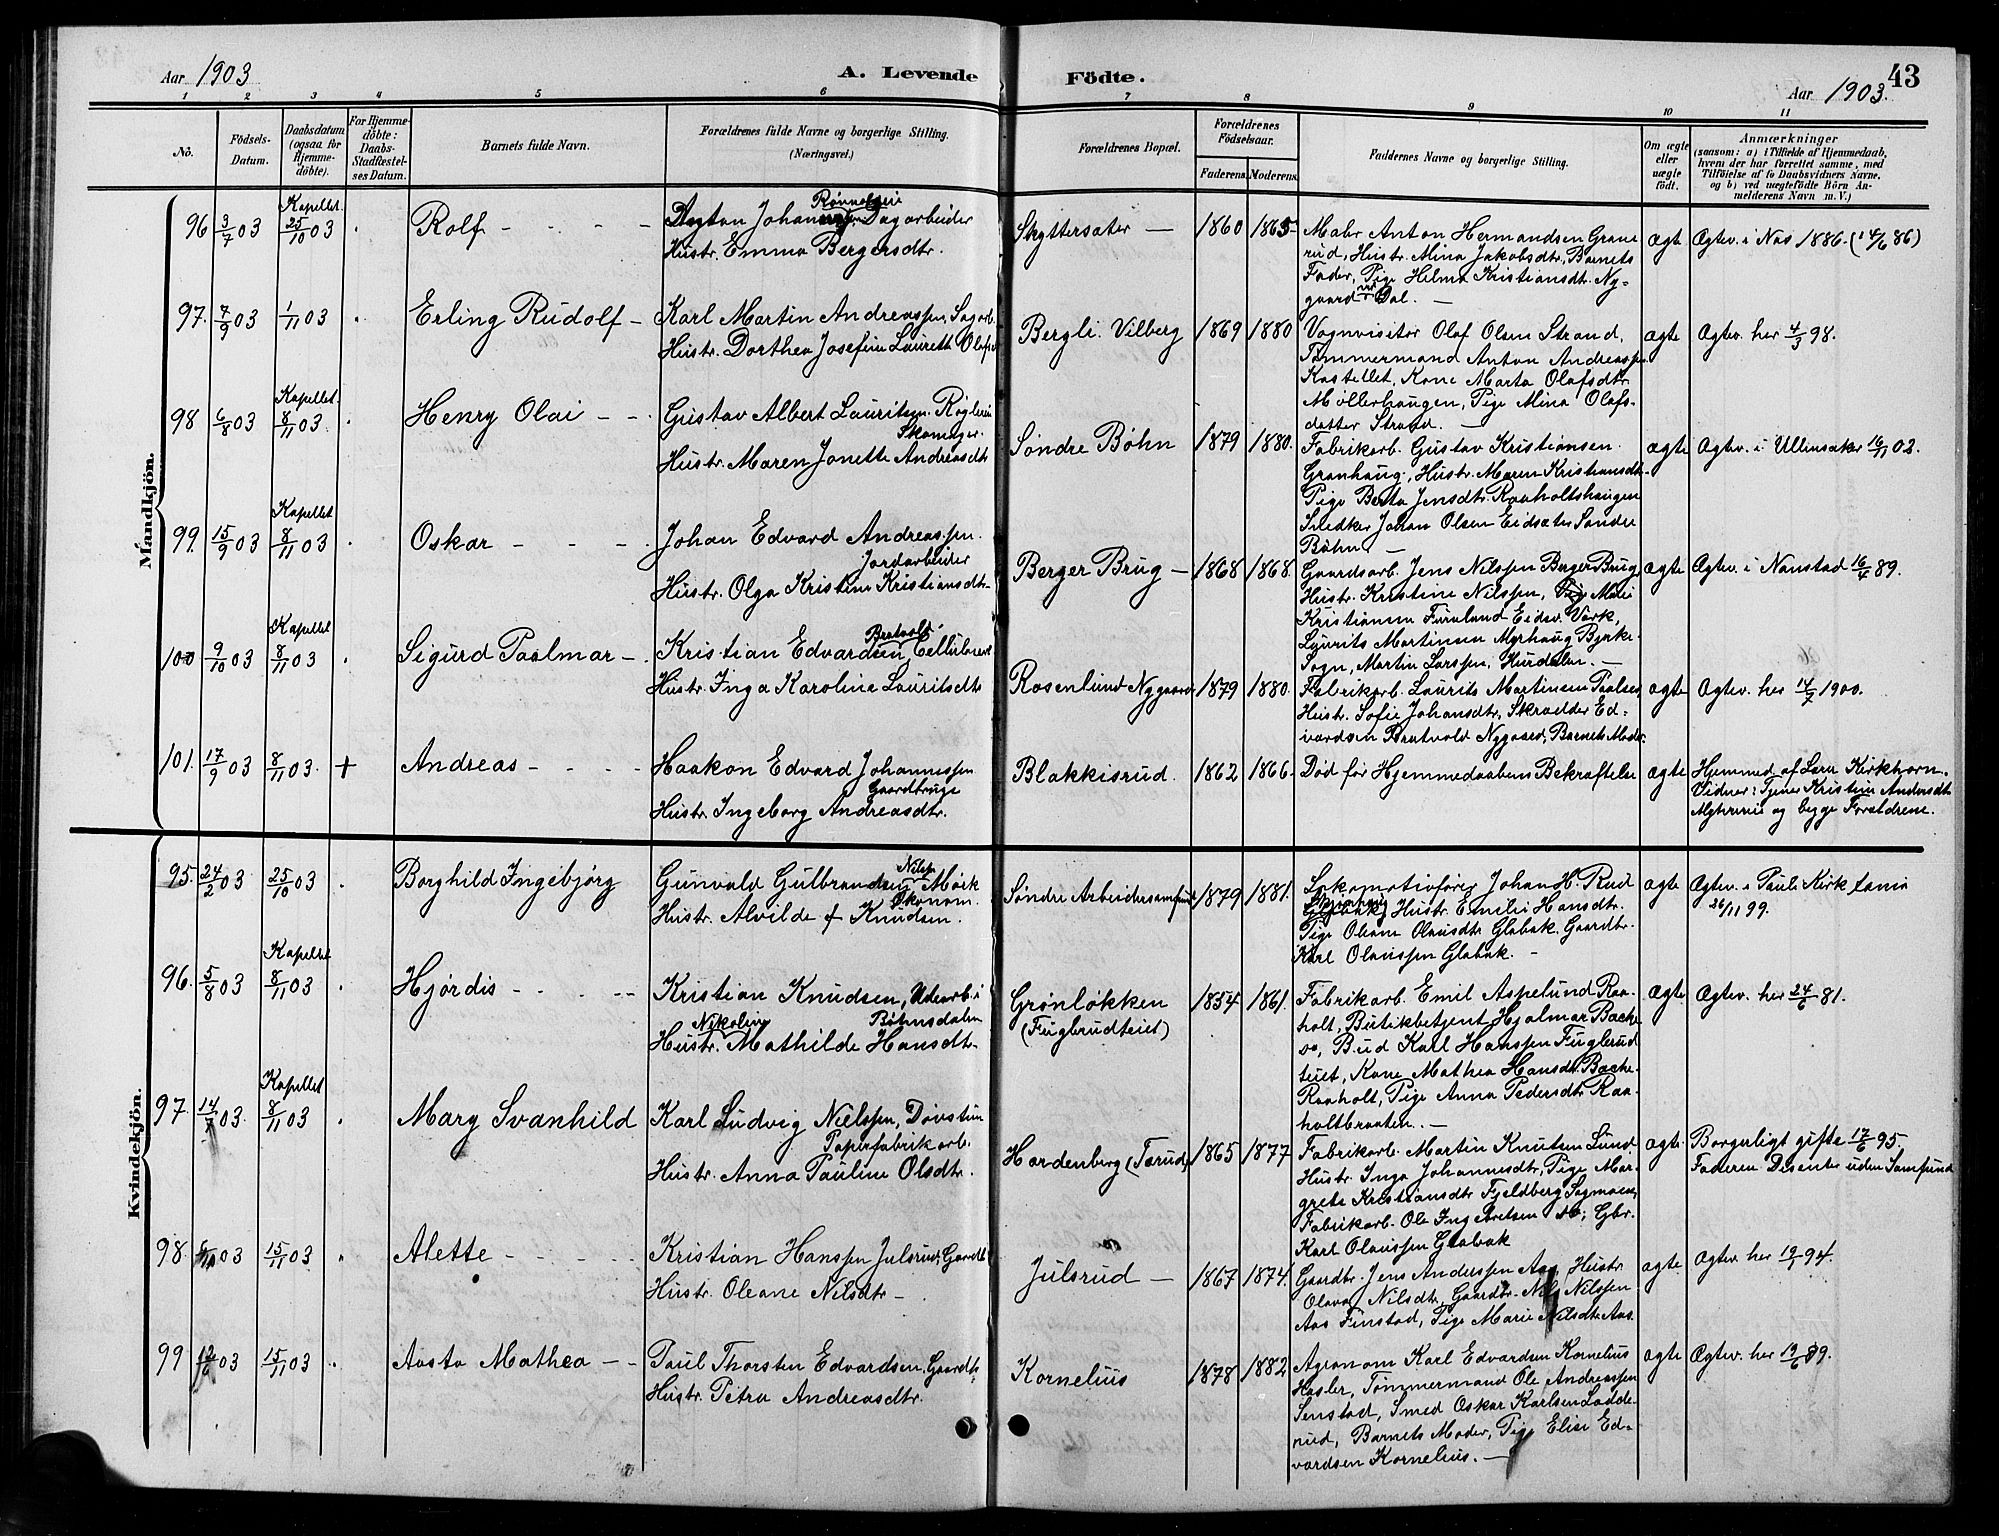 Aar 1903
A. Levende Födte.
43
Aar 1903.
1 2 3 4 5 6 7 8 9 10 11
No.
Födsels-Datum.
Daabsdatum (ogsaa for Hjemmedöbte).
For Hjemmedöbte: Daabs-Stadfæstelses Datum.
Barnets fulde Navn.
Forældrenes fulde Navne og borgerlige Stilling. (Næringsvei.)
Forældrenes Bopæl.
Forældrenes Födselsaar.
Faderens. Moderens.
Faddernes Navne og borgerlige Stilling.
Om ægte eller uægte födt.
Anmærkninger
(saasom: a) i Tilfælde af Hjemmedaab,
hvem der har forrettet samme, med
Tilföielse af to Daabsvidners Navne,
og b) ved uægtefödte Börn Anmelderens Navn m. V.)
Mandkjön.
96 3/7 03 Kapellet 25/10 03 Rolf
Anton Dagarbeider
Hustr. Emma Bergersdtr.
Skyttersæter 1860 1865
Maler Anton Hermandsen Grane
rud, Hustr. Mina Jakobsdtr, Barnets
Fader, Pige Helma Kristiansdt. Ny=
gaard Dal.
ægte
Ægtev. i Nas 1886. (14/6 86)
97. 7/9 03 1/11 03 Erling Rudolf
Karl Martin Andreassen, Sagarb.
Hustr. Dorthea Josefine Laurette Olafsd
Bergli. Vilberg 1869 1880
Vognvisitør Olaf Olsen Strand,
Tømmermand Anton Andreassen
Kastellet, Kone Marta Olafsdtr
Møllerhaugen, Pige Mina Olafs-
datter Strand.
ægte
Ægtev. her 4/3 98.
98 6/8 03 Kapellet 8/11 03 Henry Olai
Gustav Albert Lauritsen
Skomager.
Hustr. Maren Jonette Andreasdtr
Søndre Bøhn 1879 1880.
Fabrikarb. Gustav Kristiansen
Granhaug, Hustr. Maren Kristiansdtr.
Pige Berta Jensdtr. Raaholtshaugen
Snedker Johan Olsen Eidsæter Søndre
Bøhn
ægte
Ægtev. i Ullensaker 16/11 02.
99. 15/9 03 Kapellet 8/11 03 Oskar
Johan Edvard Andreassen.
Jordarbeider
Hustr. Olga Kristine Kristiansdtr
Berger Brug 1868 1868.
Gaardsarb. Jens Nilssen Berger Brug
Hustr. Kristine Nilssen, Pige Marie
Kristiansen Furulund Eidsv. Værk,
Laurits Martinsen Myrhaug Bjerke
Sogn, Martin Larssen, Hurdalen.
ægte
Ægtev. i Nanstad 16/4 89.
100 9/10 03 Kapellet 8/11 03 Sigurd Paalmar
Bratvold
Kristian Edvardsen Cellulosearb
Hustr. Inga Karoline Lauritsdtr
Rosenlund Nygaard 1879 1880.
Fabrikarb. Laurits Martinsen Paalsen
Hustr. Sofie Johansdtr, Skrædder Ed-
vardsen Bratvold Nygaard, Barnets Moder.
ægte
Ægtev. her 14/7 1900.
101. 17/9 03 8/11 03. + Andreas
Haakon Edvard Johannessen
Gaardbruger
Hustr. Ingeborg Andreasdtr.
Blakkisrud. 1862 1866.
Død før Hjemmedaabens Bekræftelse
ægte
Hjemmed. af Lars Kirkhorn.
Vidner: Tjener Kristine Andersdtr
og begge Forældrene.
Kvindekjön.
95. 24/2 03 25/10 03 Borghild Ingebjørg
Gunvald Gulbrandsen Mørk
Økonom.
Hustr. Alvilde f Knudsen.
Søndre Arbeidersamfund 1879 1881.
Lokomotivfører Johan H. Rud
Hustr. Emilie Hansdtr.
Pige Oleane Olausdtr Glabak, Gaardbr.
Karl Olaussen Glabak.
ægte
Ægtev. i Pauls Kirk Xania
26/11 99.
96. 5/8 03 Kapellet 8/11 03 Hjørdis
Kristian Knudsen, Udearb. i
Bøhnsdalen
Nikoline
Hustr. Mathilde Hansdtr.
Grønløkken
(Fuglerudteiet)
1854 1861.
Fabrikarb. Emil Aspelund Raa-
holt, Butikbetjent Hjalmar Bache
do, Bud Karl Hanssen Fuglerud
teiet, Kone Mathea Hansdt. Bache
Raaholt, Pige Anna Pedersdtr Raa-
holtbraaten.
ægte
Ægtev. her 24/6 81.
97. 14/7 03. Kapellet 8/11 03 Mary Svanhild
Karl Ludvig Nielssen, Døvstum
Papirfabrikarb.
Hustr. Anna Pauline Olsdtr.
Hardenberg (Tærud) 1865 1877
Fabrikarb. Martin Knutsen Lund
Hustr. Inga Johannesdtr, Pige Mar-
grete Kristiansdtr Fjeldberg Sagmoen,
Fabrikarb. Ole Ingebretsen do; Gbr.
Karl Olaussen Glabak
ægte
Borgerligt gifte 17/6 95.
Faderen Dissenter uden Samfund
98. 03 15/11 03 Alette
Kristian Hanssen Julsrud, Gaardb
Hustr. Oleane Nilsdtr
Julsrud 1867 1874.
Gaardbr. Jens Anderssen Aas, Hustr
Olava Nilsdtr, Gaardbr. Nils Nilssen
Aas Finstad, Pige Marie Nilsdtr Aas.
ægte
Ægtev. her 94.
99 12/6 03 15/11 03 Aasta Mathea
Paul Thorsten Edvardsen, Gaardbr
Hustr. Petra Andreasdtr.
Kornelius 1878 1882
Agronom Karl Edvardsen Kornelius
Hasler, Tømmermand Ole Andreassen
Senstad, Smed Oskar Karlsen Ladde-
rud, Barnets Moder, Pige Elise Ed-
vardsen Kornelius.
ægte
Ægtev. her